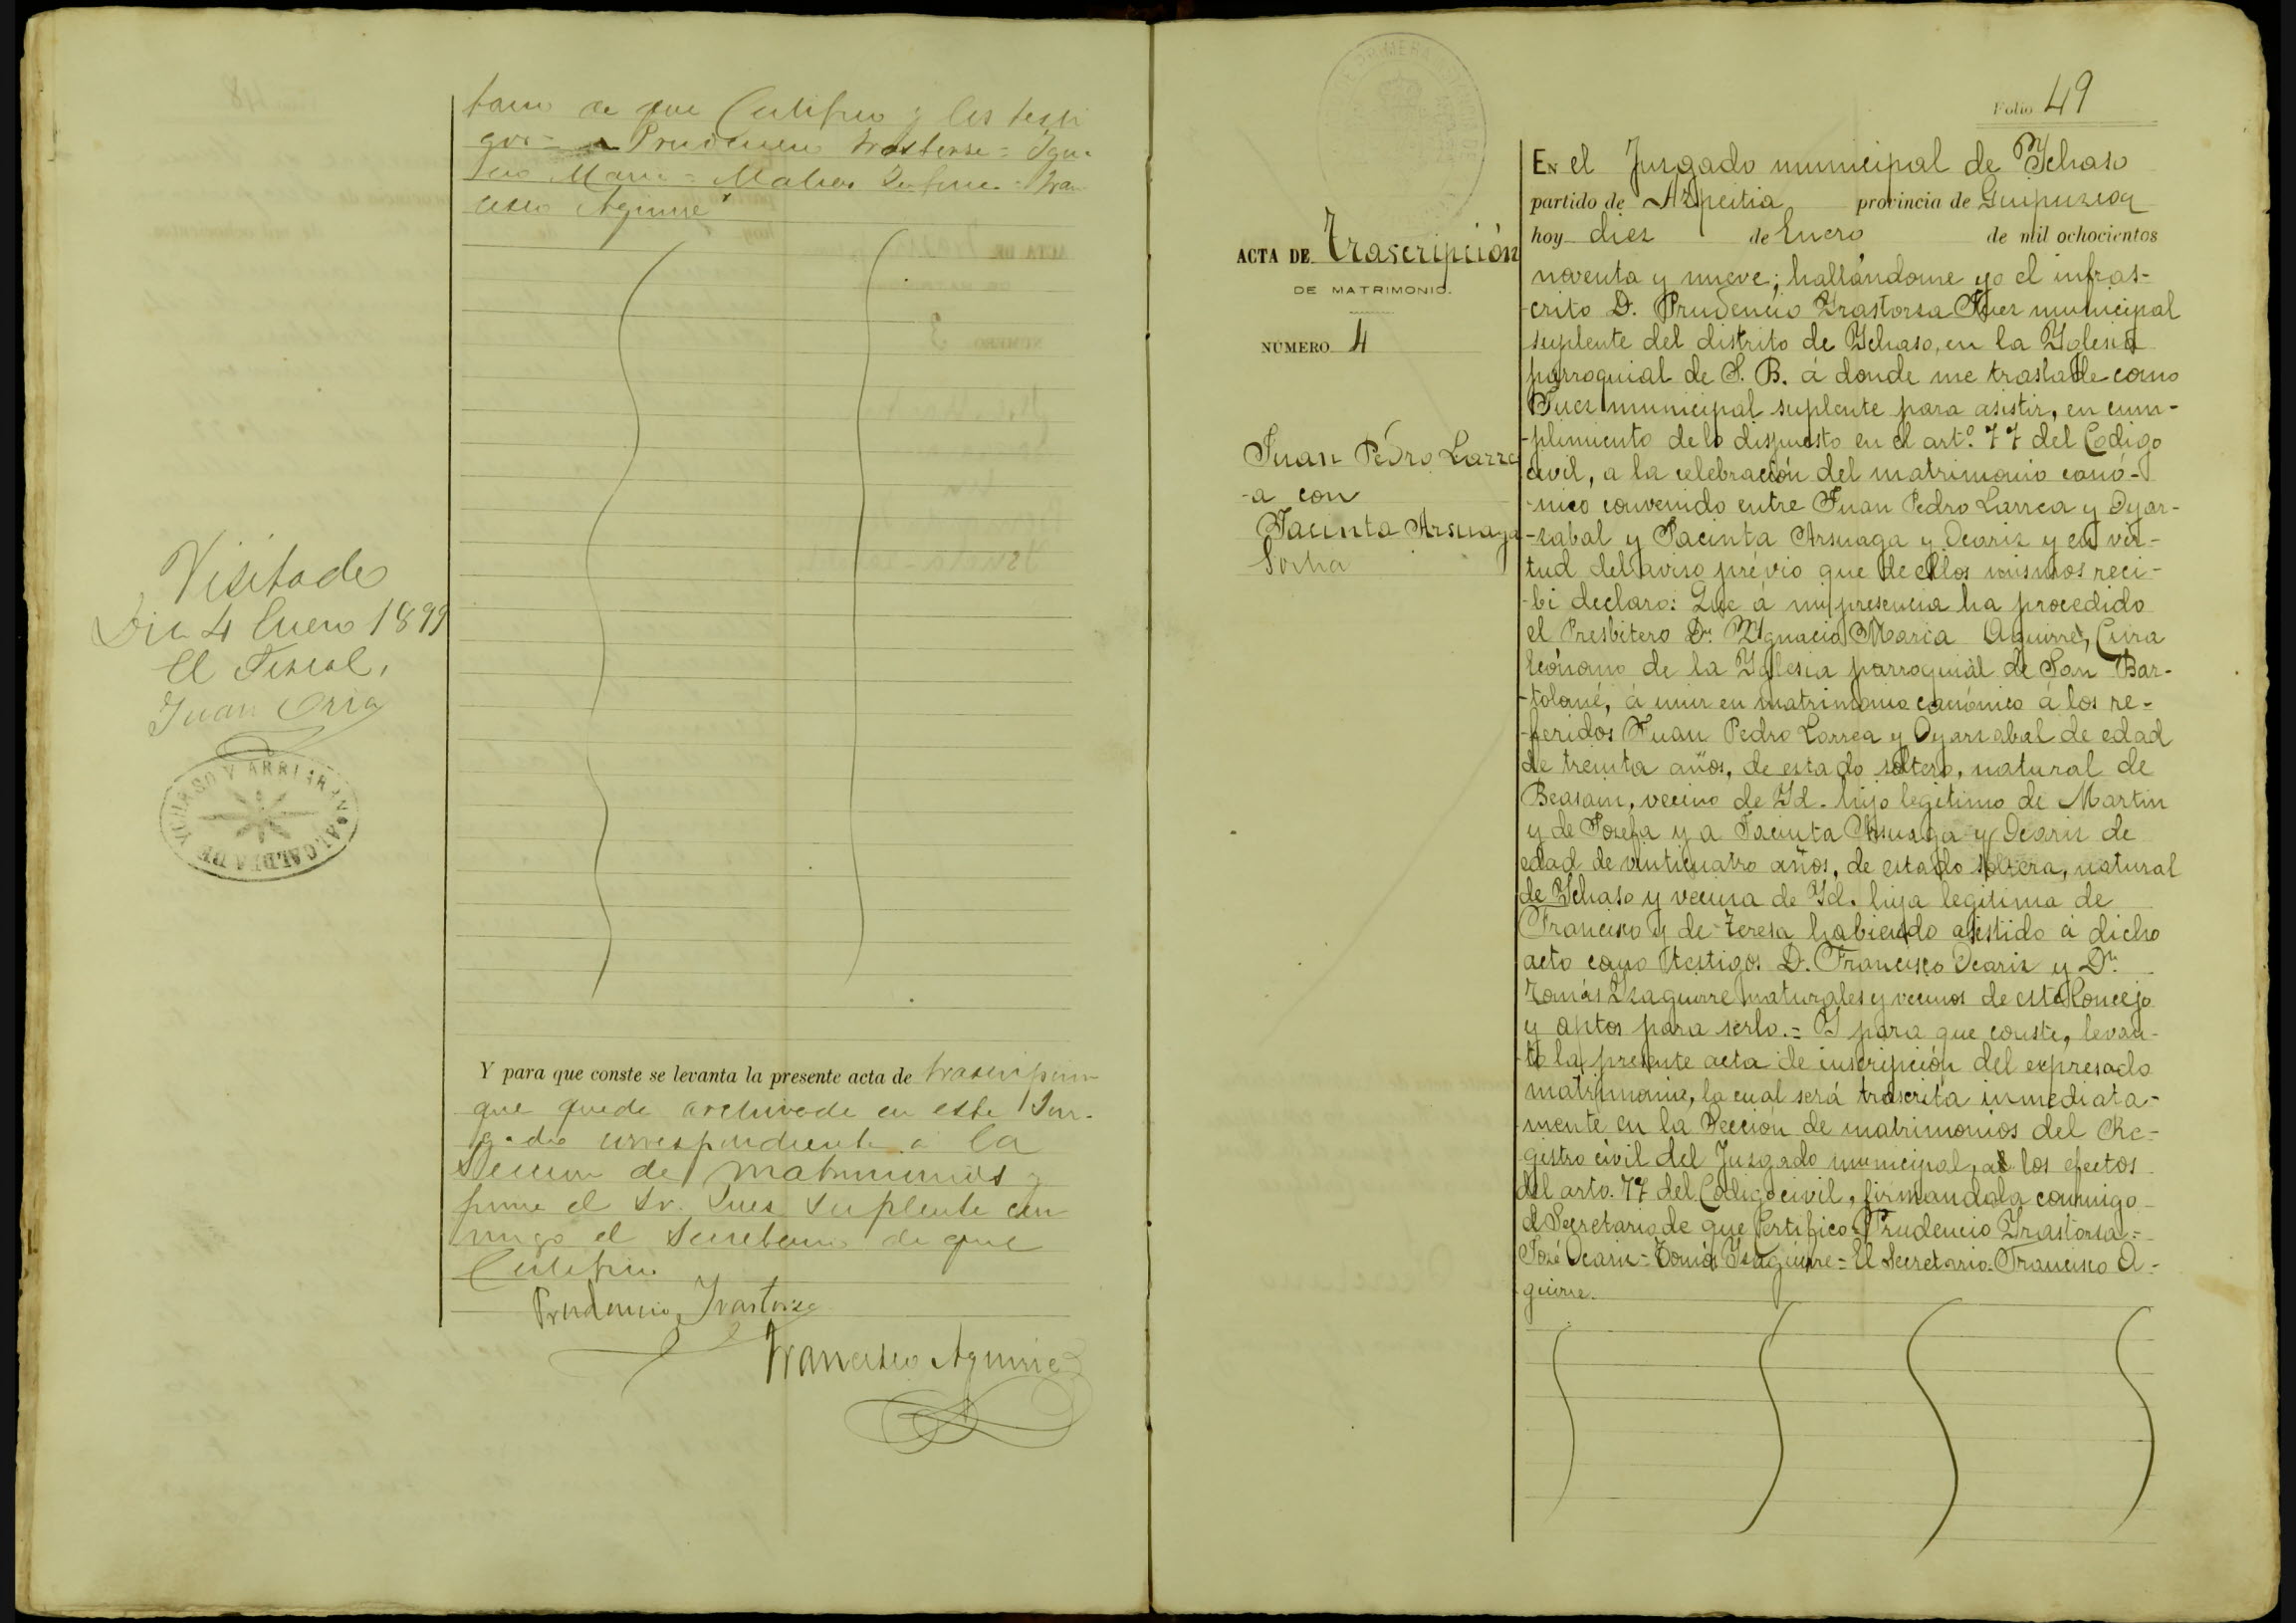 tario de que Certifico y los testi
gos = Prudencio Irastorza = Igna
cio Maria = Matias = Fran
cisco Aguirre
Visitado
Dia 4 Enero 1899
El Fiscal,
Juan Oria
ALCALDIA DE YCHASO Y ARRIARAN
Y para que conste se levanta la presente acta de trascripcion
que queda archivada en este Juz-
gado correspondiente a la
Seccion de matrimonios y
firma el Sr. Juez Suplente con
migo el Secretario de que
Certifico
Prudencio Irastorza
Francisco Aguirre
Folio 49
ACTA DE Trascripción
DE MATRIMONIO.
NÚMERO 4
Juan Pedro Larre
-a con
Jacinta Arsuaga
En el Juzgado municipal de Ychaso
partido de Azpeitia provincia de Guipuzcoa
hoy diez de Enero de mil ochocientos
noventa y nueve; hallándome yo el infras-
-crito D. Prudencio Yrastorza Juez municipal
suplente del distrito de Ychaso, en la Yglesia
parroquial de S. B. á donde me trasladé como
Juez municipal suplente para asistir, en cum-
-plimiento de lo dispuesto en el artº. 77 del Codigo
civil, a la celebración del matrimonio canó-
-nico convenido entre Juan Pedro Larrea y Oyar-
-zabal y Jacinta Arsuaga y Ocariz y en vir-
tud del aviso prévio que de ellos mismos reci-
-bi declaro: Que á mi presencia ha procedido
el Presbitero Dn. Ygnacio Maria Aguirre, Cura
Ecónomo de la Yglesia parroquiál de San Bar-
-tolomé, á unir en matrimonio canónico á los re-
-feridos Juan Pedro Larrea y Oyarzabal de edad
de treinta años, de estado soltero, natural de
Beasain, vecino de Yd. hijo legitimo de Martin
y de Josefa y a Jacinta Arsuaga y Ocariz de
edad de vinticuatro años, de estado soltera, natural
de Ychaso y vecina de Yd. hija legitima de
Francisco y de Teresa habiendo asistido á dicho
acto como testigos D. Francisco Ocariz y Dn.
Tomás Yzaguirre naturales y vecinos de este Concejo
y aptos para serlo.= Y para que conste, levan-
-to la presente acta de inscripción del expresado
matrimonio, la cual será trascrita inmediata-
-mente en la Sección de matrimonios del Re-
gistro civil del Juzgado municipal, a los efectos
del arto. 77 del Codigo civil, firmandola conmigo
el Secretario de que Certifico = Prudencio Yrastorza =
José Ocariz = Tomás Yzaguirre = El Secretario. Francisco A-
guirre.